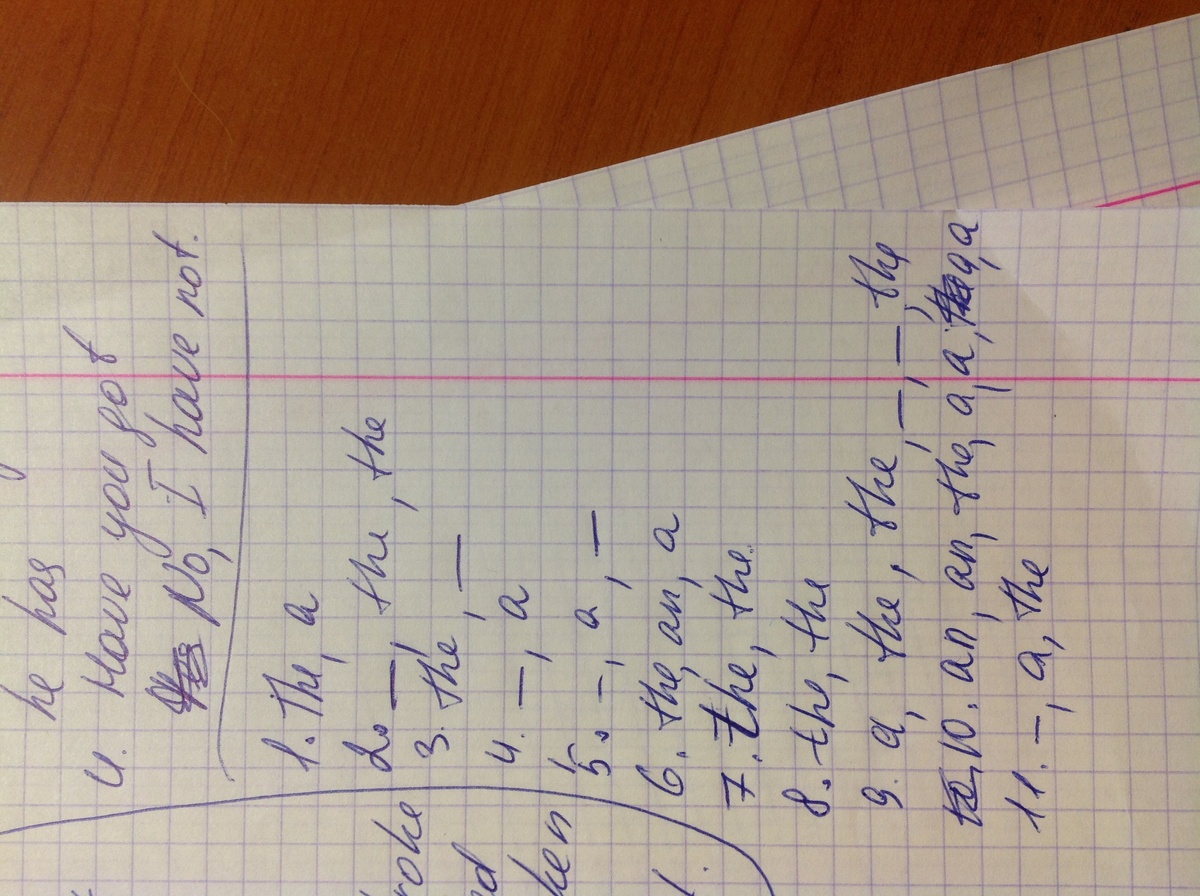 he has
4. Have you got
No, I have not.
1. The, a
2. —, the, the
3. the, —
4. —, a
5. –, a, —
6. the, an, a
7. the, the.
8. the, the
9. a, the, the, —, —, the
10. an, an, the, a, a, a, a
11. –, a, the
roke
ken